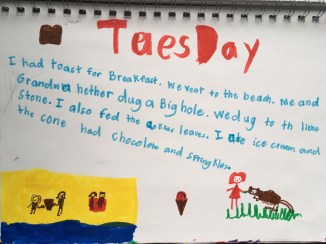 TuesDay
I had toast for Breakfast. We went to the beach. Me and
Grandma hether dug a Big hole. We dug to th lime
Stone. I also fed the leaves. I ate ice cream and
the cone had chocolate and sprinkles.